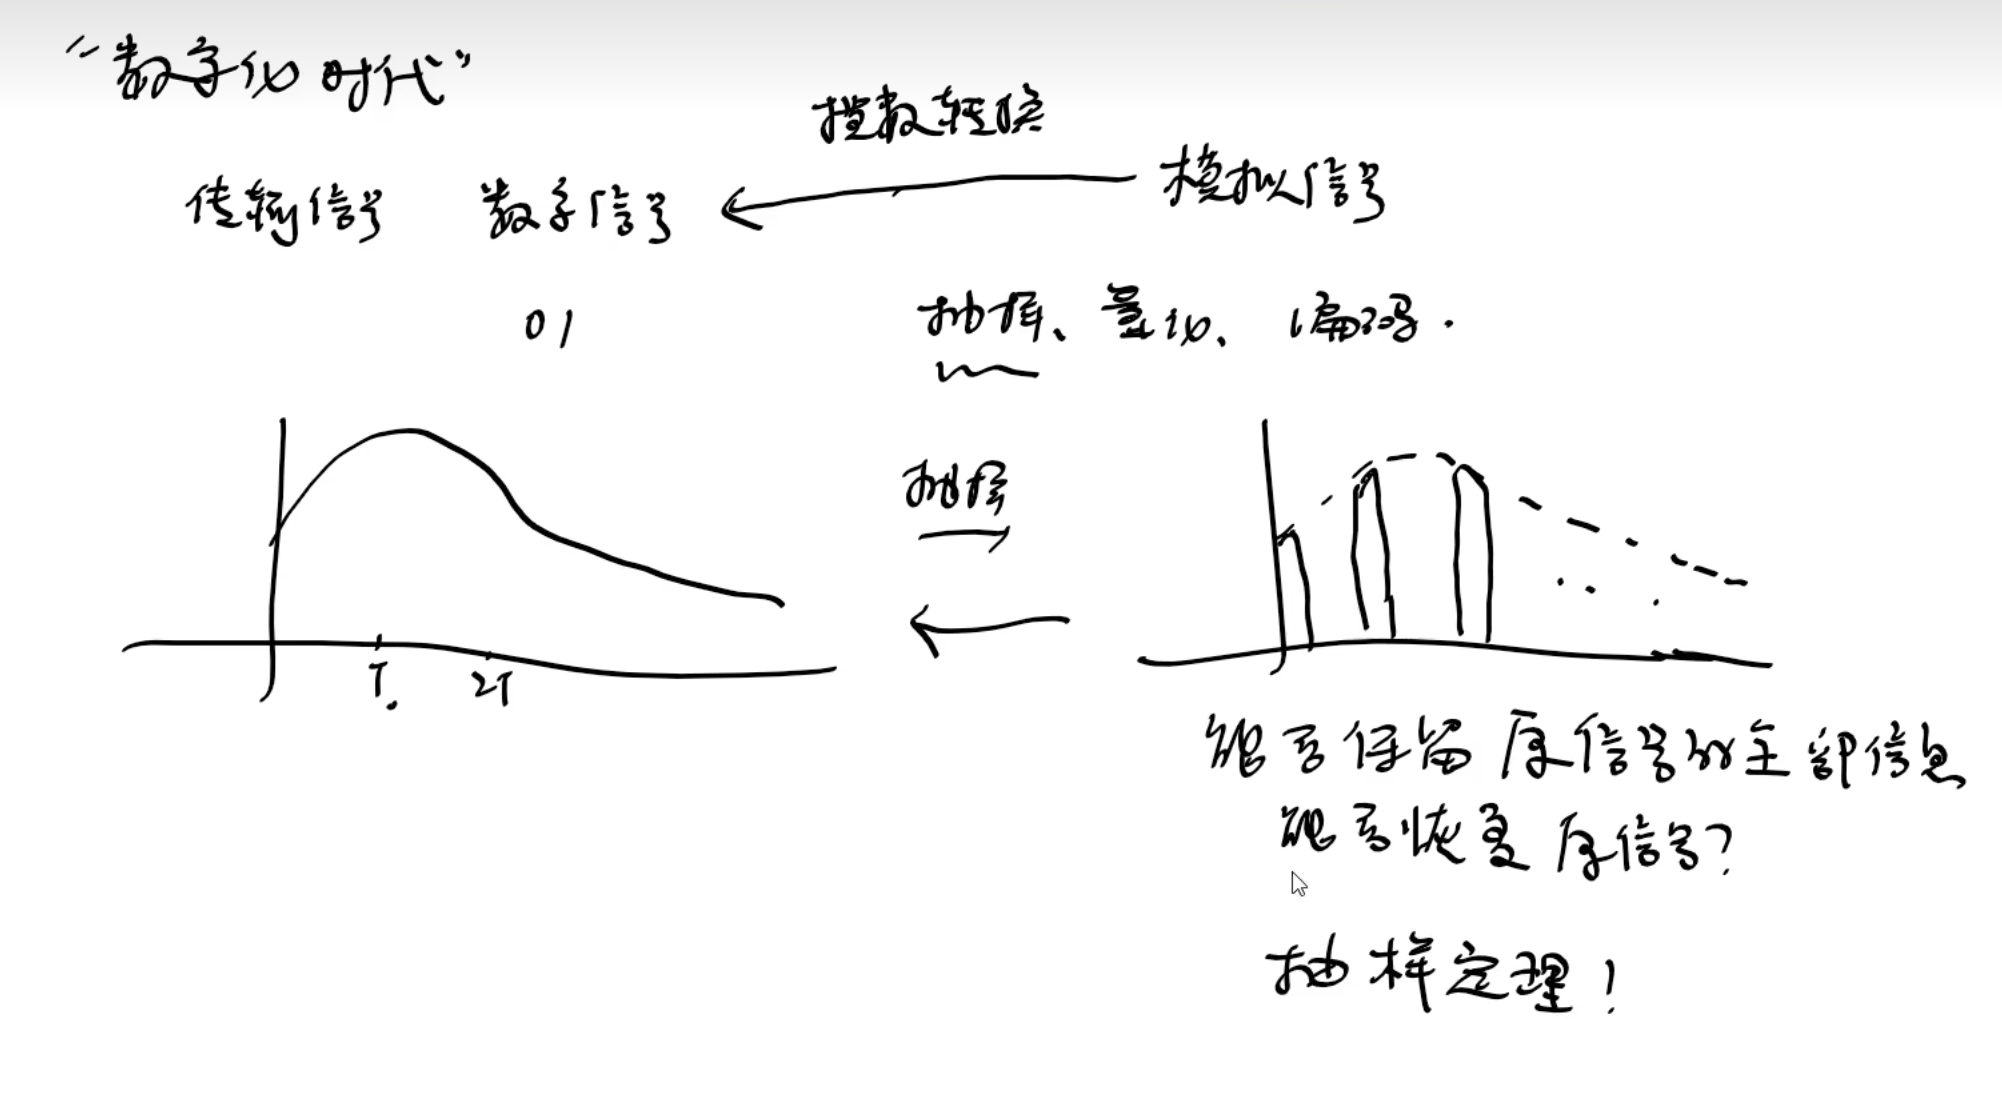 “数字化时代”
模数转换
传输信号 数字信号 模拟信号
01 抽样、量化、编码.
抽样
T 2T
能否保留原信号的全部信息
能否恢复原信号?
抽样定理!